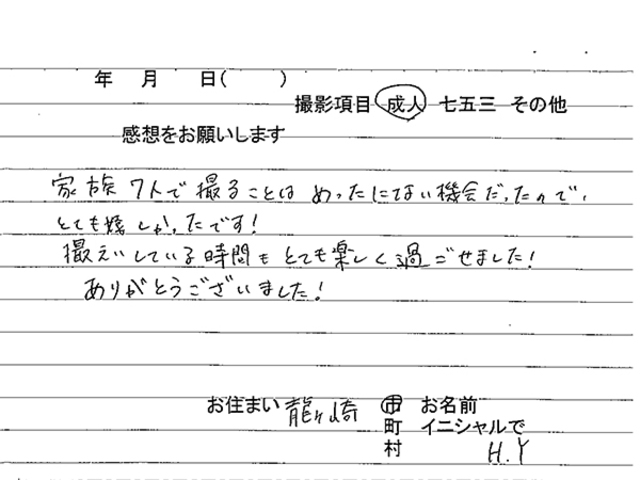 年 月 日( )
撮影項目 成人 七五三 その他
感想をお願いします
家族7人で撮ることはめったにない機会だったので、
とても嬉しかったです!
撮影している時間もとても楽しく過ごせました!
ありがとうございました!
お住まい 龍ヶ崎 市 お名前
町 イニシャルで
村 H.Y